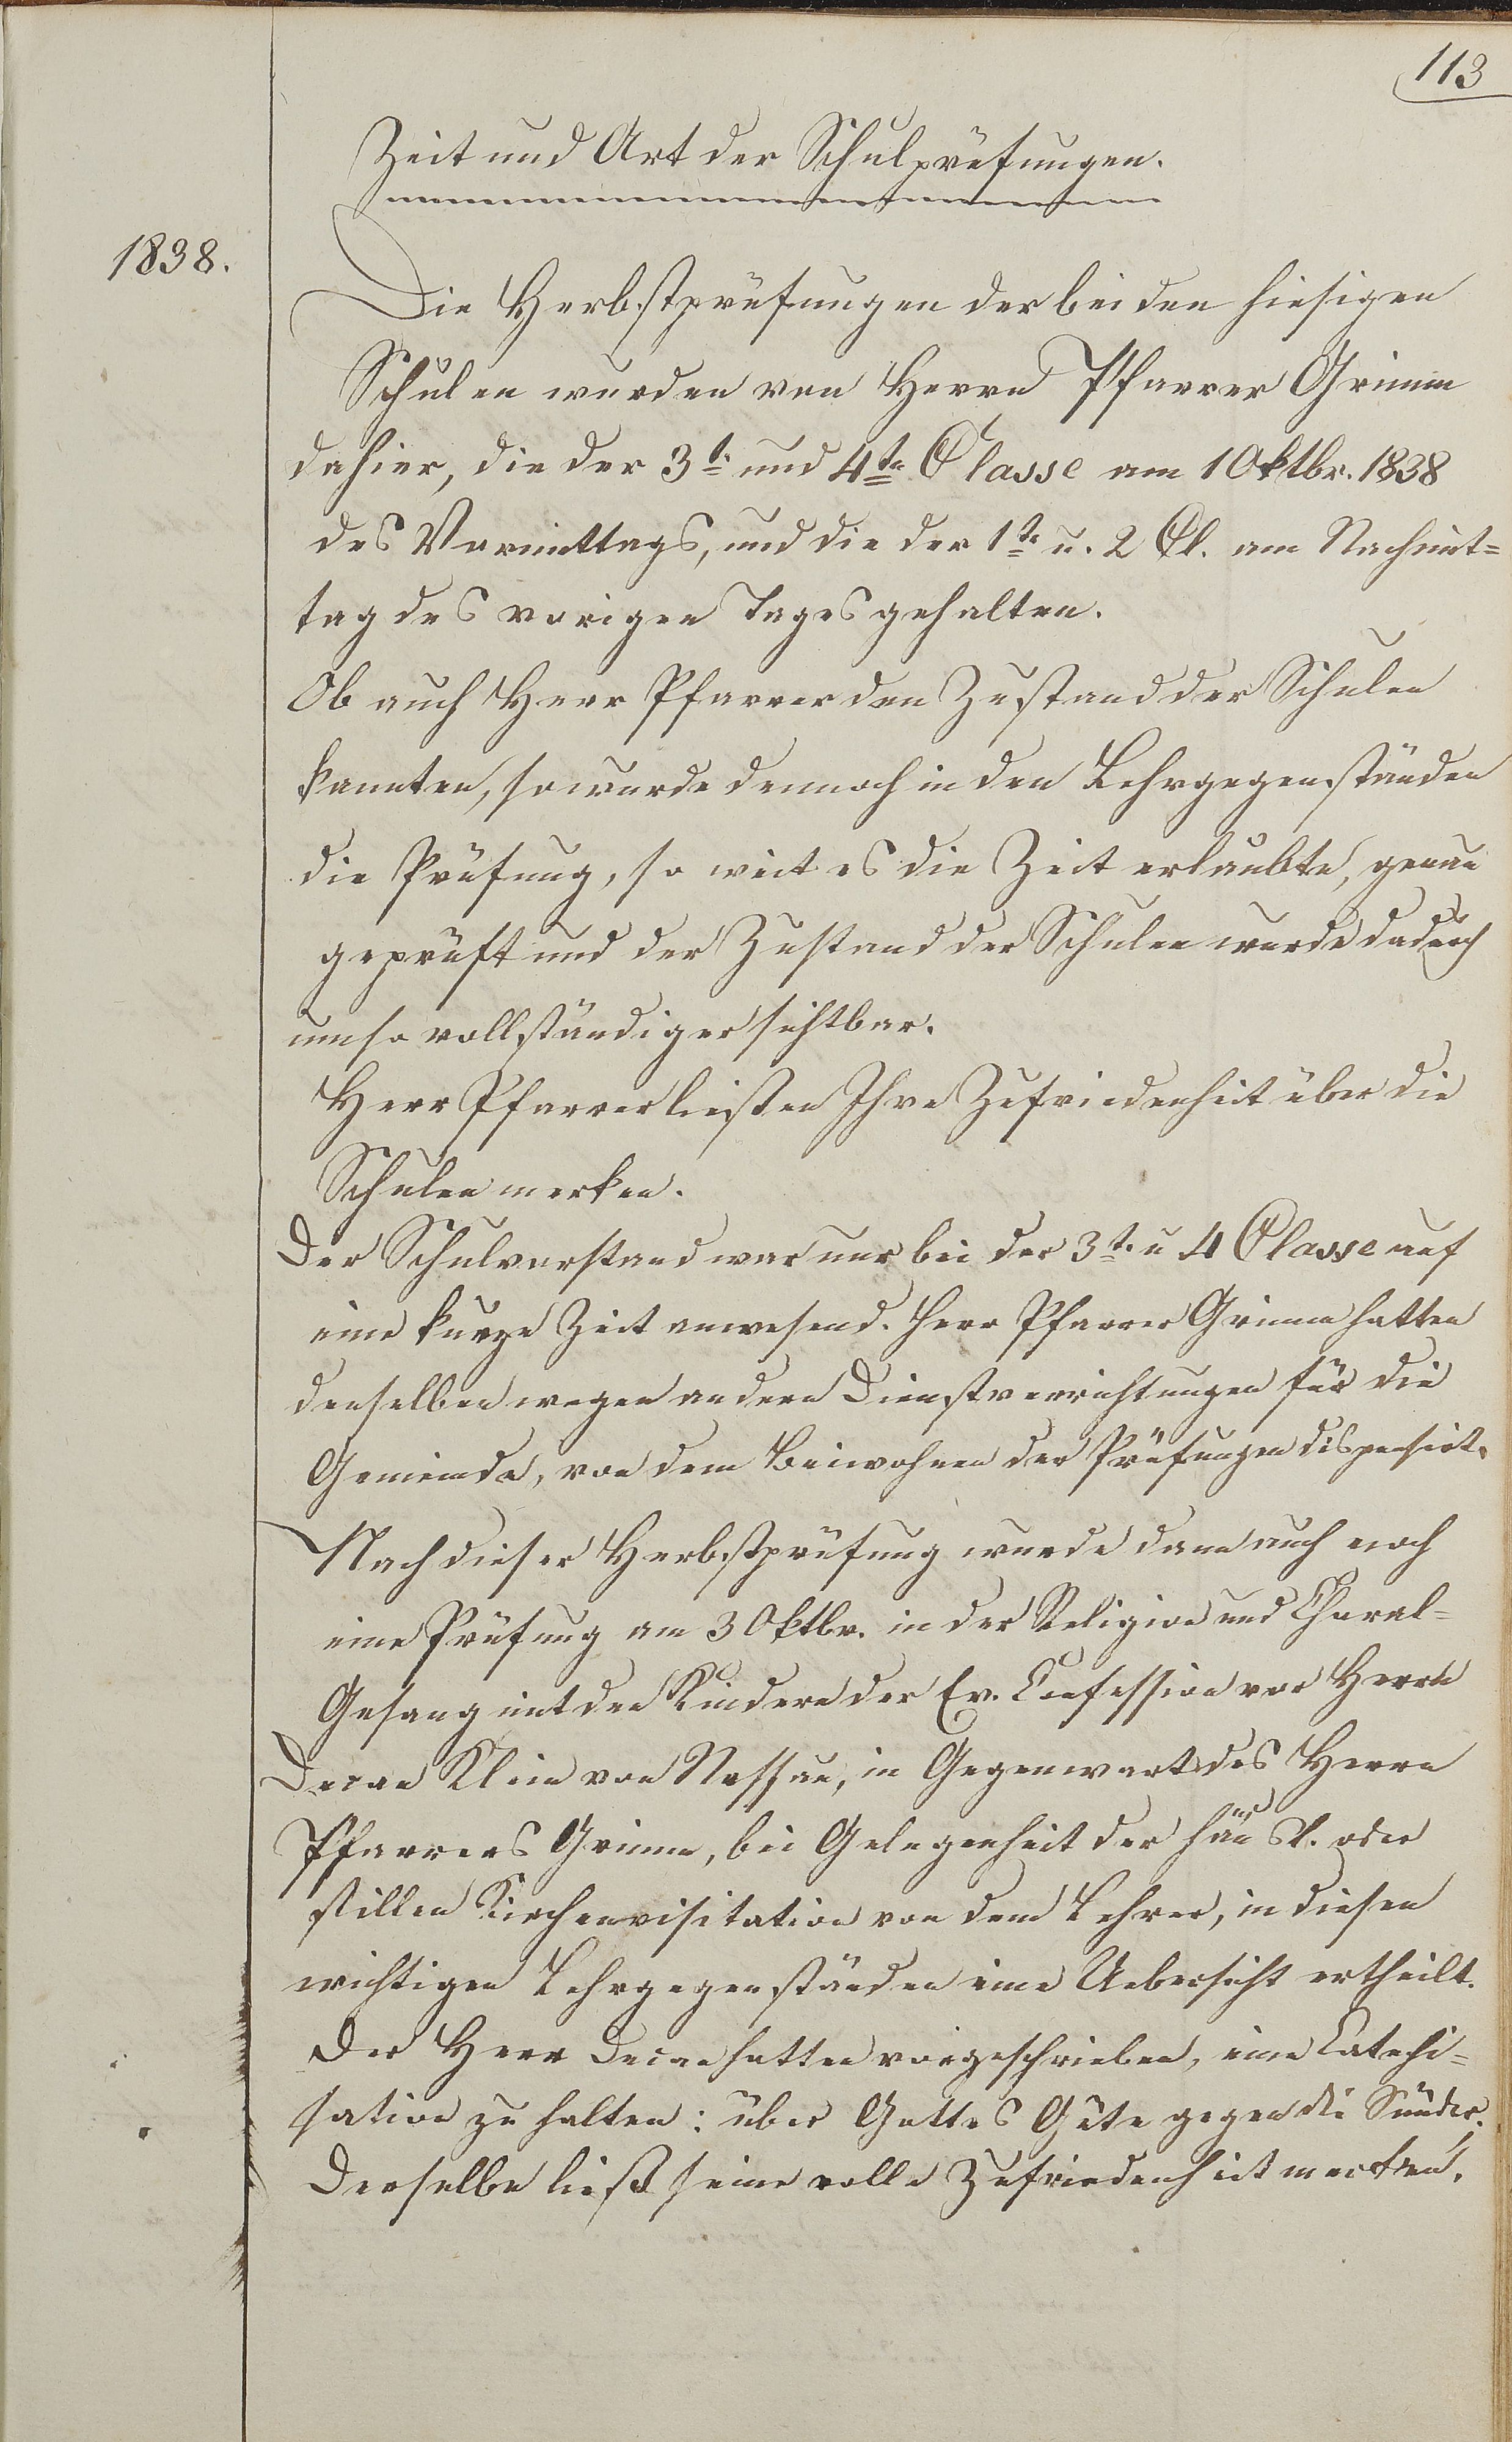 113
Zeit und Art der Schulprüfungen.
1838.
Die Herbstprüfungen der beiden hiesigen
Schulen wurden von Herrn Pfarrer Grimm
dahier, die der 3t. und 4te Classe am 1 Oktbr. 1838
des Vormittags, und die der 1te u. 2 Cl. am Nachmit=
tag des vorigen Tages gehalten.
Ob auch Herr Pfarrer den Zustand der Schulen
kannten, so wurde dennoch in den Lehrgegenständen
die Prüfung, so weit es die Zeit erlaubte, genau
geprüft und der Zustand der Schulen wurde dadurch
umso vollständiger sichtbar.
Herr Pfarrer ließen Ihre Zufriedenheit über die
Schulen merken.
Der Schulvorstand war nur bei der 3t. u 4 Classe auf
eine kurze Zeit anwesend. Herr Pfarrer Grimm hatten
denselben wegen andern Dienstverrichtungen für die
Gemeinde, von dem Beiwohnen der Prüfungen dispensirt.
Nach dieser Herbstprüfung wurde dann auch noch
eine Prüfung am 3 Oktbr. in der Religion und Choral=
Gesang mit den Kindern der Ev. Confession vor Herrn
Decan Klein von Nassau, in Gegenwart des Herrn
Pfarrers Grimm, bei Gelegenheit der häusl. oder
stillen Kirchenvisitation von dem Lehrer, in diesen
wichtigen Lehrgegenständen eine Uebersicht ertheilt.
Der Herr Decan hatten vorgeschrieben, eine Catechi=
sation zu halten: über Gottes Güte gegen die Sünder.
Derselbe ließ seine volle Zufriedenheit merken.